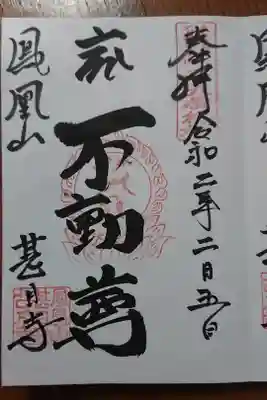 奉拝 令和二年二月五日
不動尊
鳳凰山 甚目寺